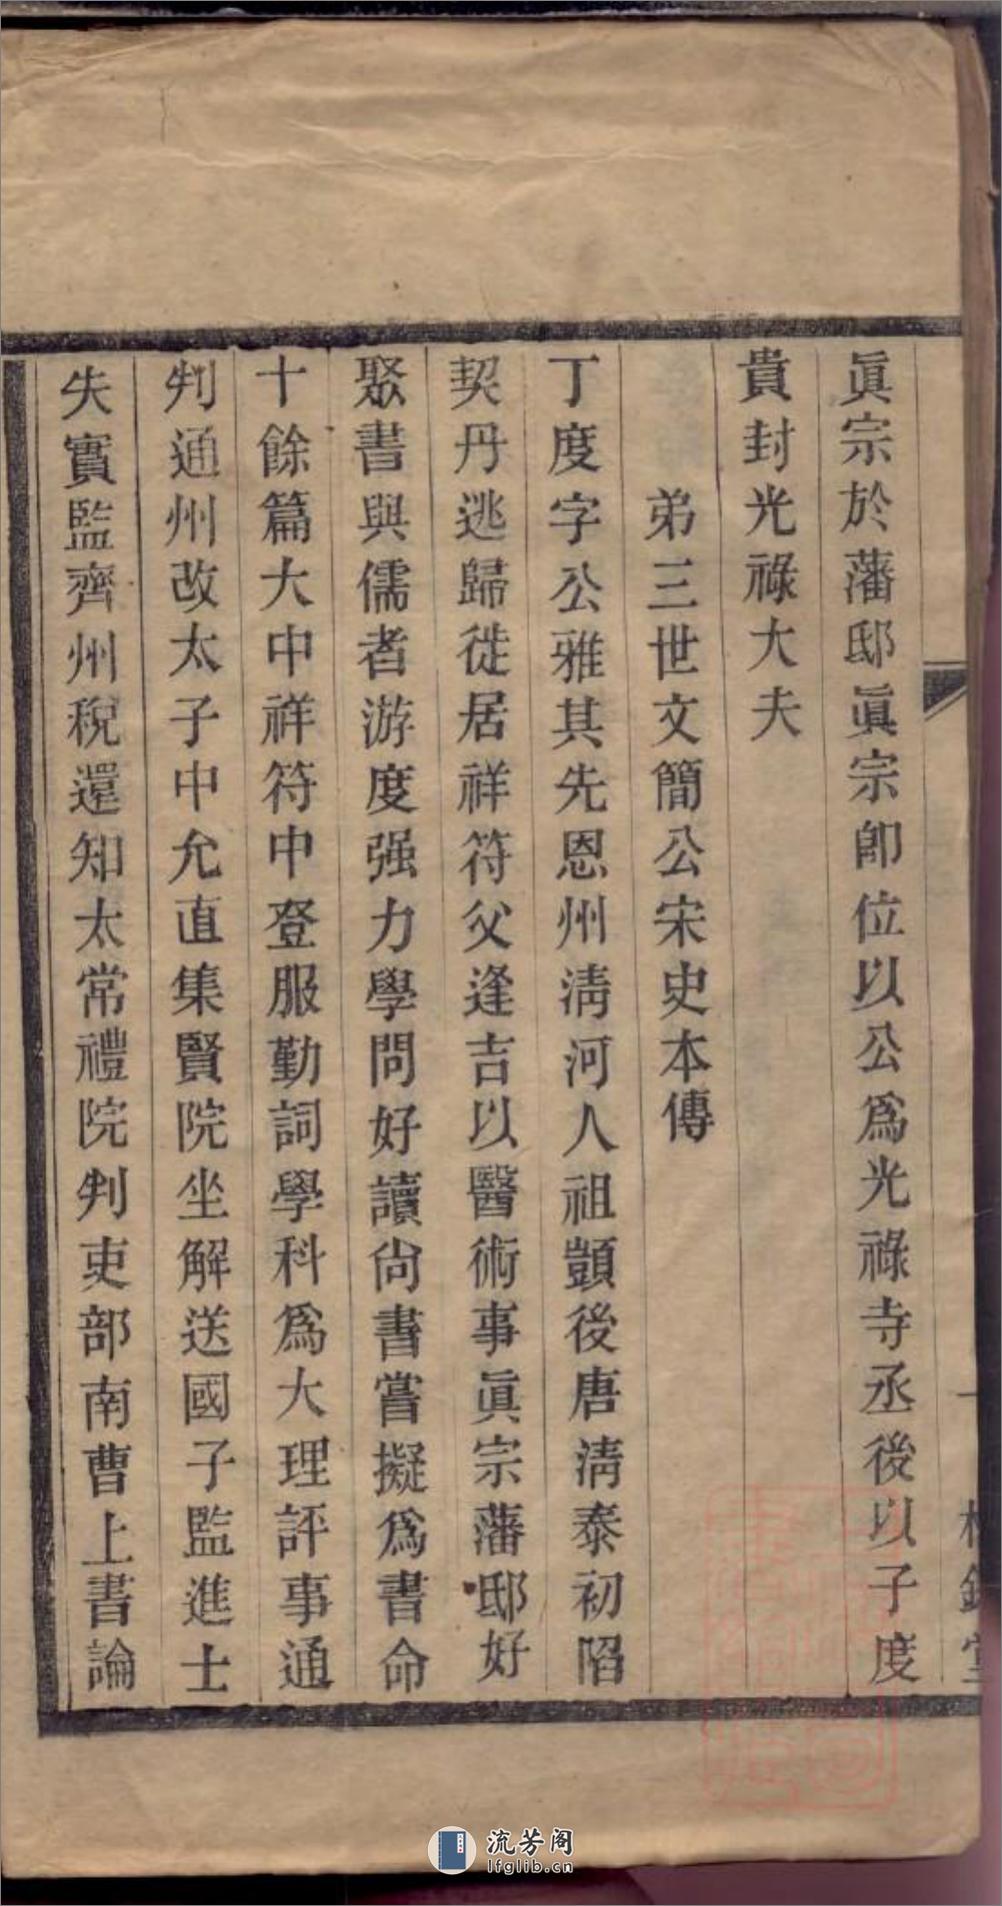 眞宗於藩邸眞宗卽位以公爲光祿寺丞後以子度
貴封光祿大夫
弟三世文簡公宋史本傳
丁度字公雅其先恩州淸河人祖顗後唐淸泰初陷
契丹逃歸徙居祥符父逢吉以醫術事眞宗藩邸好
聚書與儒者游度强力學問好讀尙書嘗擬爲書命
十餘篇大中祥符中登服勤詞學科爲大理評事通
判通州改太子中允直集賢院坐解送國子監進士
失實監齊州稅還知太常禮院判吏部南曹上書論
流芳阁
lfglib.cn